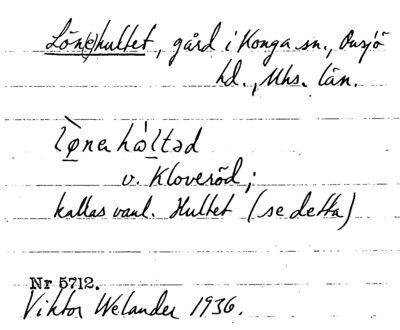 Lön(e)hultet, gård i Konga sn., Onsjö
hd., Mhs. län.
lø̀na hòltəd
v. Kloveröd;
kallas vanl. Hultet (se detta)
Nr 5712.
Viktor Welander 1936.